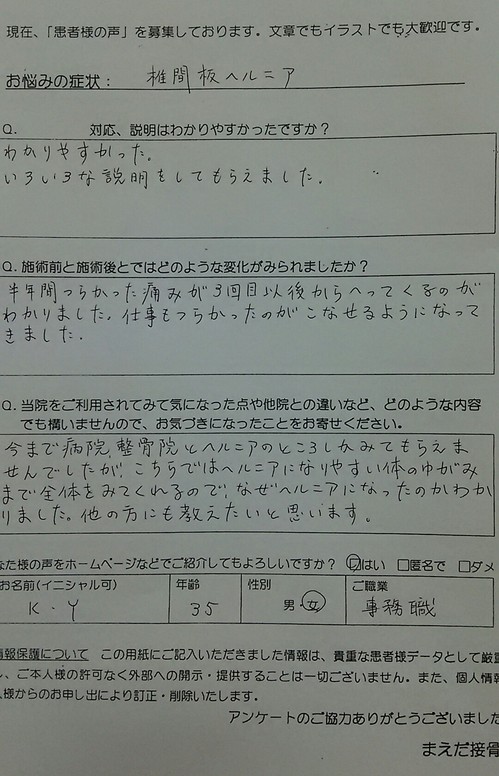 現在、「患者様の声」を募集しております。文章でもイラストでも大歓迎です。
お悩みの症状： 椎間板ヘルニア
Q. 対応、説明はわかりやすかったですか？
わかりやすかった。
いろいろな説明をしてもらえました。
Q. 施術前と施術後とではどのような変化がみられましたか？
半年間つらかった痛みが3回目以後からへってくるのが
わかりました。仕事もつらかったのがこなせるようになって
きました。
Q. 当院をご利用されてみて気になった点や他院との違いなど、どのような内容
でも構いませんので、お気づきになったことをお寄せください。
今まで病院、整骨院とヘルニアのところしかみてもらえま
せんでしたが、こちらではヘルニアになりやすい体のゆがみ
まで全体をみてくれるので、なぜヘルニアになったのかわか
りました。他の方にも教えたいと思います。
なた様の声をホームページなどでご紹介してもよろしいですか？ ☑はい □匿名で □ダメ
お名前(イニシャル可) 年齢 性別 ご職業
K・Y 35 男・女 事務職
情報保護について この用紙にご記入いただきました情報は、貴重な患者様データとして厳重
、ご本人様の許可なく外部への開示・提供することは一切ございません。また、個人情報
人様からのお申し出により訂正・削除いたします。
アンケートのご協力ありがとうございました
まえだ接骨